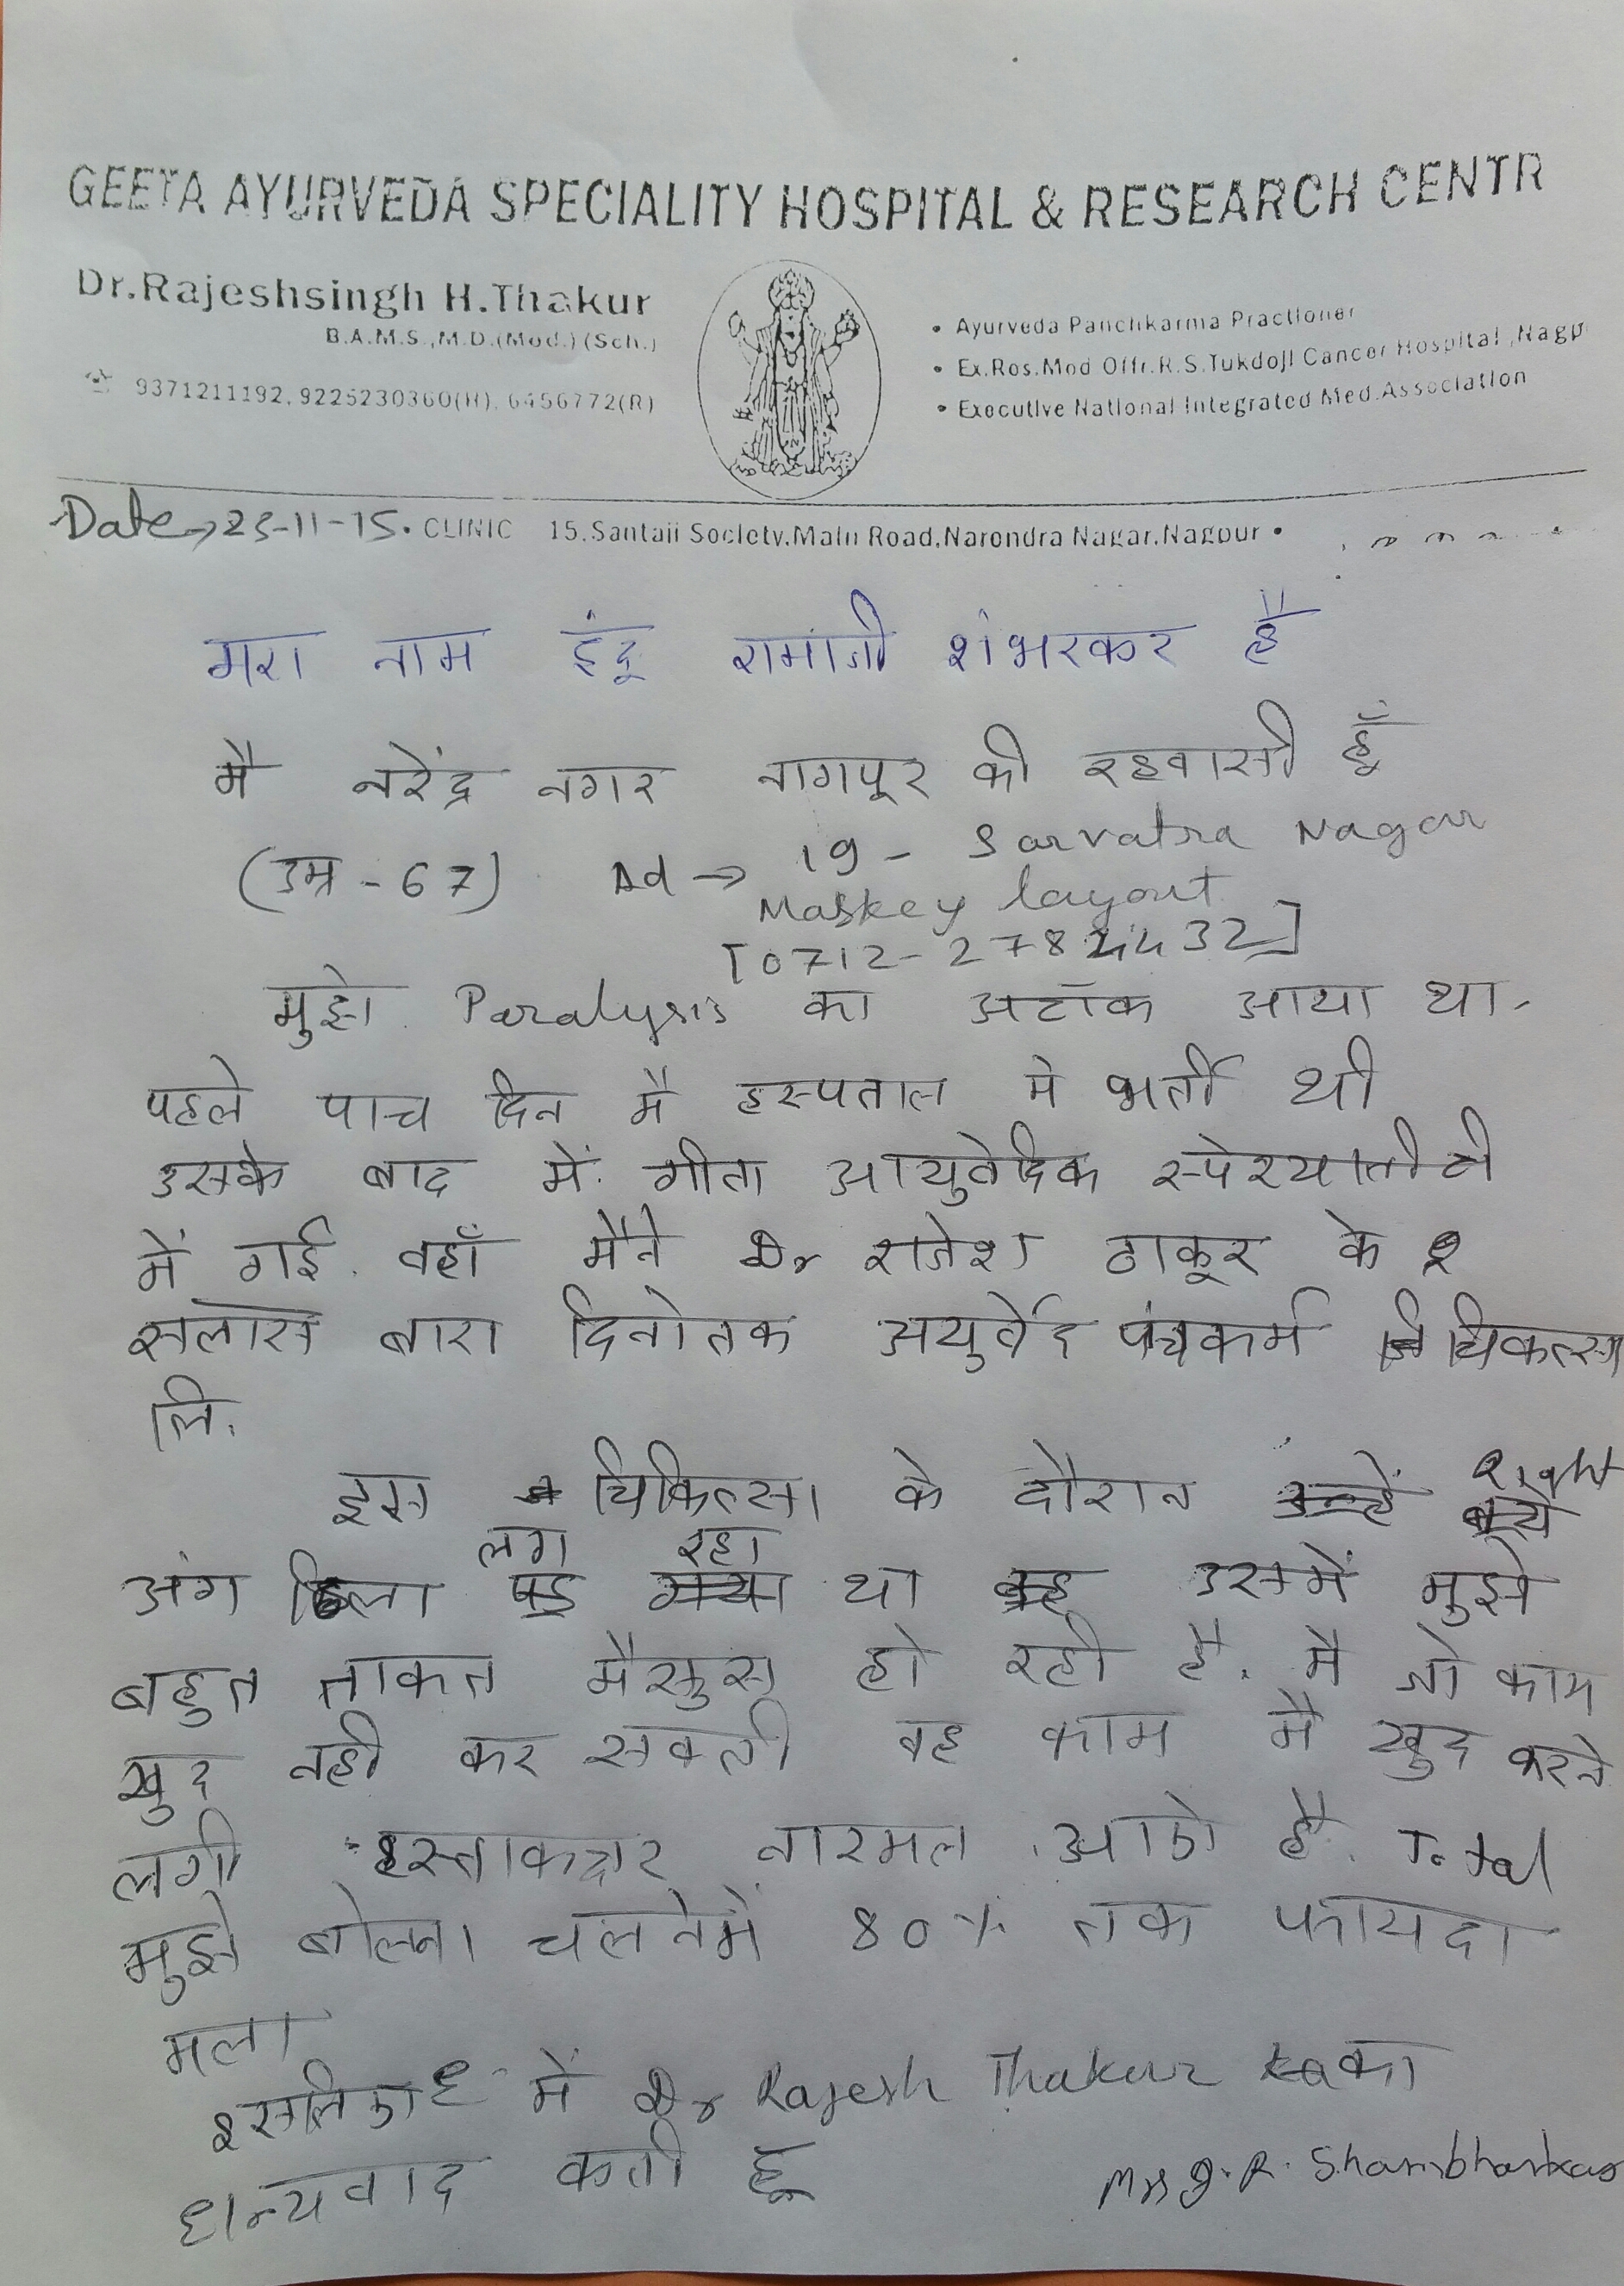 GEETA AYURVEDA SPECIALITY HOSPITAL & RESEARCH CENTR
Dr.Rajeshsingh H.Thakur
B.A.M.S.,M.D.(Med.)(Sch.)
9371211192, 9225230360(H), 6456772(R)
• Ayurveda Panchkarma Practioner
• Ex.Res.Med Offr.R.S.Tukdoji Cancer Hospital ,Nagp
• Executive National Integrated Med.Association
Date→23-11-15. CLINIC 15.Santaji Society.Main Road,Narendra Nagar,Nagpur •
मेरा नाम इंदू रामाजी शंभरकर है
मै नरेंद्र नगर नागपूर की रहवासी हूँ
(उम्र - 67) Ad → 19 - Sarvatra Nagar
Maskey layout
[0712-2784432]
मुझे Paralysis का अटॉक आया था.
पहले पाच दिन मै हस्पताल मे भर्ती थी
उसके बाद में. गीता आयुर्वेदिक स्पेश्याली
में गई. वहाँ मैने Dr राजेश ठाकूर के
सलासे बारा दिनोतक अयुर्वेद पंचकर्म चिकित्सा
लि.
इस चिकित्सा के दौरान Right
लग रहा
अंग ढिला था उसमें मुझे
बहुत ताकत मैसुस हो रही है. मै जो काम
खुद नही कर सकती वह काम मै खुद करने
लगी हस्ताक्षर नारमल आठो है. Total
मुझे बोलना चलनेमें 80% तक फायदा
मला
इसलिए में Dr Rajesh Thakur का
धन्यवाद कर्ती हू
Mrs I. R. Shambharkar